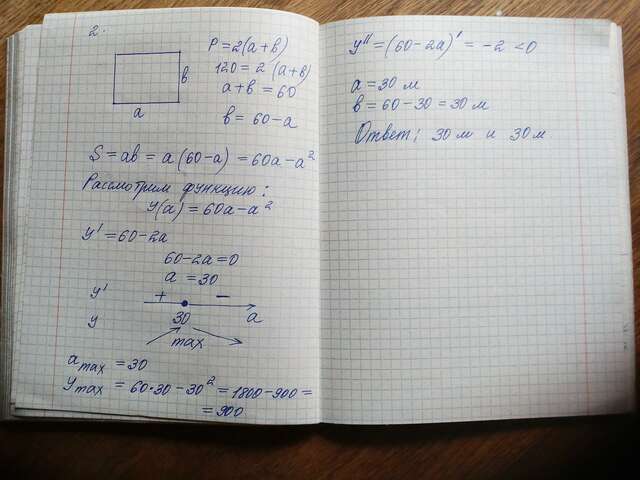 2.
P = 2(a+в)
120 = 2(a+в)
a+в = 60
в
a
в = 60-a
S = aв = a(60-a) = 60a-a²
Рассмотрим функцию:
y(a) = 60a-a²
y' = 60-2a
60-2a=0
a = 30
y' + −
y 30 a
max
a max = 30
y max = 60·30-30² = 1800-900 =
= 900
y'' = (60-2a)' = -2 <0
a = 30 м
в = 60-30 = 30 м
Ответ: 30 м и 30 м